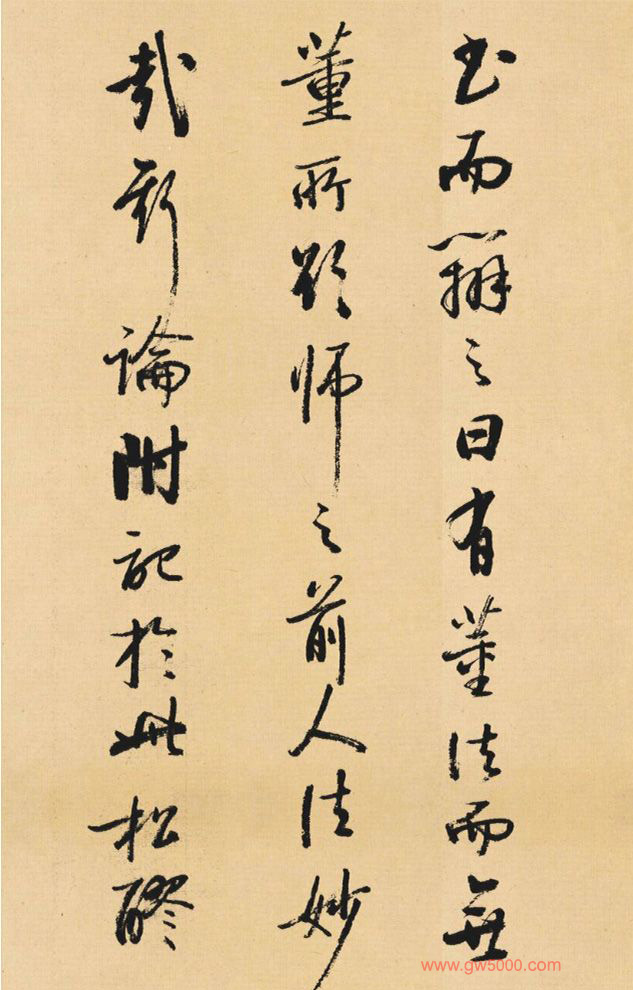 書而辨之曰有董法而無
董所欲師之前人法妙
哉斯論附記於此松醪
www.gw5000.com